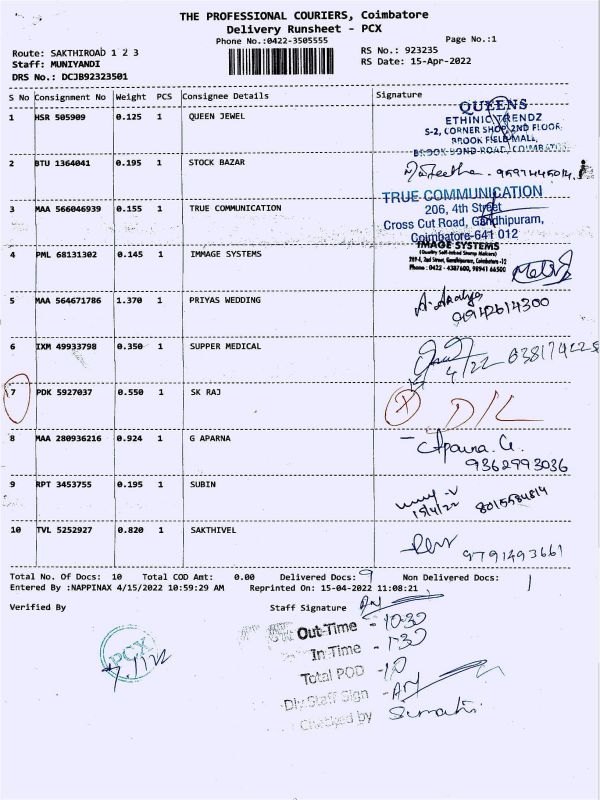 THE PROFESSIONAL COURIERS, Coimbatore
Delivery Runsheet - PCX
Phone No.:0422-3505555
Page No.:1
Route: SAKTHIROAD 1 2 3
RS No.: 923235
Staff: MUNIYANDI
RS Date: 15-Apr-2022
DRS No.: DCJB92323501
S No Consignment No Weight PCS Consignee Details Signature
1 HSR 505909 0.125 1 QUEEN JEWEL
QUEENS
ETHINIC TRENDZ
S-2, CORNER SHOP, 2ND FLOOR,
BROOK FIELD MALL,
BROOK BOND ROAD, COIMBATORE
2 BTU 1364041 0.195 1 STOCK BAZAR
3 MAA 566046939 0.155 1 TRUE COMMUNICATION
TRUE COMMUNICATION
206, 4th Street
Cross Cut Road, Gandhipuram,
Coimbatore-641 012
4 PML 68131302 0.145 1 IMMAGE SYSTEMS
IMAGE SYSTEMS
(Quality Self-Inked Stamp Makers)
209-I, 2nd Street, Gandhipuram, Coimbatore -12
Phone : 0422 - 4387600, 98941 66500
5 MAA 564671786 1.370 1 PRIYAS WEDDING
6 IXM 49933798 0.350 1 SUPPER MEDICAL
7 PDK 5927037 0.550 1 SK RAJ
D/L
8 MAA 280936216 0.924 1 G APARNA
Aparna. G.
9362993036
9 RPT 3453755 0.195 1 SUBIN
15/4/22 8015584814
10 TVL 5252927 0.820 1 SAKTHIVEL
9791493661
Total No. Of Docs: 10 Total COD Amt: 0.00 Delivered Docs: 9 Non Delivered Docs: 1
Entered By :NAPPINAX 4/15/2022 10:59:29 AM Reprinted On: 15-04-2022 11:08:21
Verified By Staff Signature
PCX
Out Time - 10:30
In Time - 1-30
Total POD - 10
Dly Staff Sign
Checked by